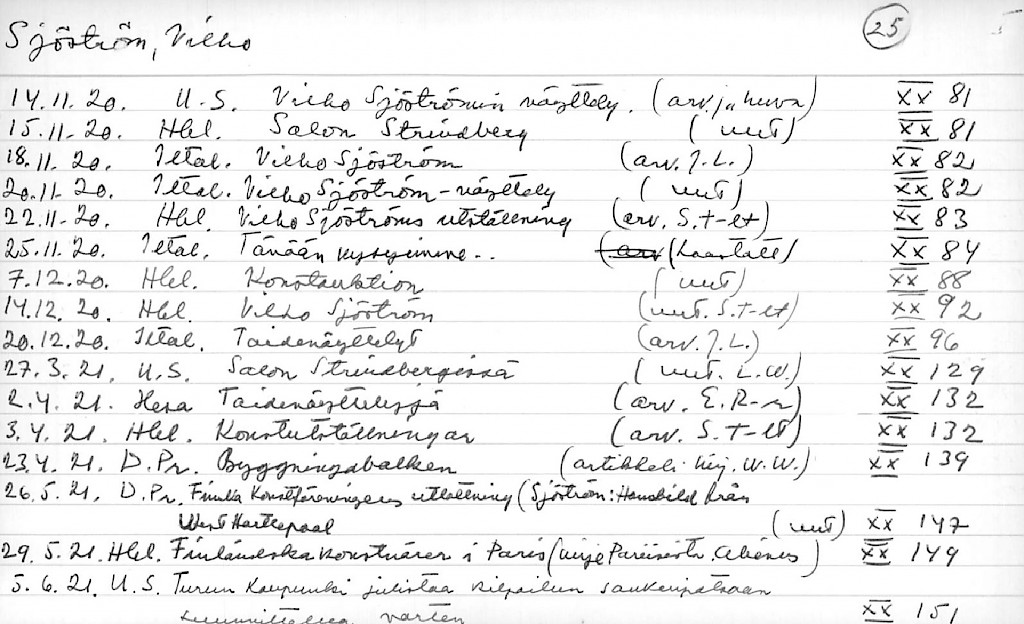 Sjöström, Vilho 25
14.11.20. U.S. Vilho Sjöströmin näyttely. (arv. ja kuva) XX 81
15.11.20. Hbl. Salon Strindberg (uut) XX 81
18.11.20. Iltal. Vilho Sjöström (arv. J.L.) XX 82
20.11.20. Iltal. Vilho Sjöström-näyttely (uut) XX 82
22.11.20. Hbl Vilho Sjöströms utställning (arv. S.T-lt) XX 83
25.11.20. Iltal. Tänään kysysimme.. (arv (haastatt) XX 84
7.12.20. Hbl. Konstauktion (uut) XX 88
14.12.20. Hbl. Vilho Sjöström (uut. S.T-lt) XX 92
20.12.20. Iltal. Taidenäyttelyt (arv. J.L.) XX 96
27.3.21. U.S. Salon Strindbergissä (uut. L.W.) XX 129
2.4.21. Hesa Taidenäyttelyissä (arv. E.R-r) XX 132
3.4.21. Hbl. Konstutställningar (arv. S.T-lt) XX 132
23.4.21. D.Pr. Byggningabalken (artikkeli kirj. W.W.) XX 139
26.5.21. D.Pr. Finska Konstföreningens utlottning (Sjöström: Hamnbild från
West Hartlepool (uut) XX 147
29.5.21. Hbl. Finländska konstnärer i Paris XX 149
5.6.21. U.S. Turun Kaupunki julistaa kilpailun sankaripatsaan
suunnittelua varten XX 151